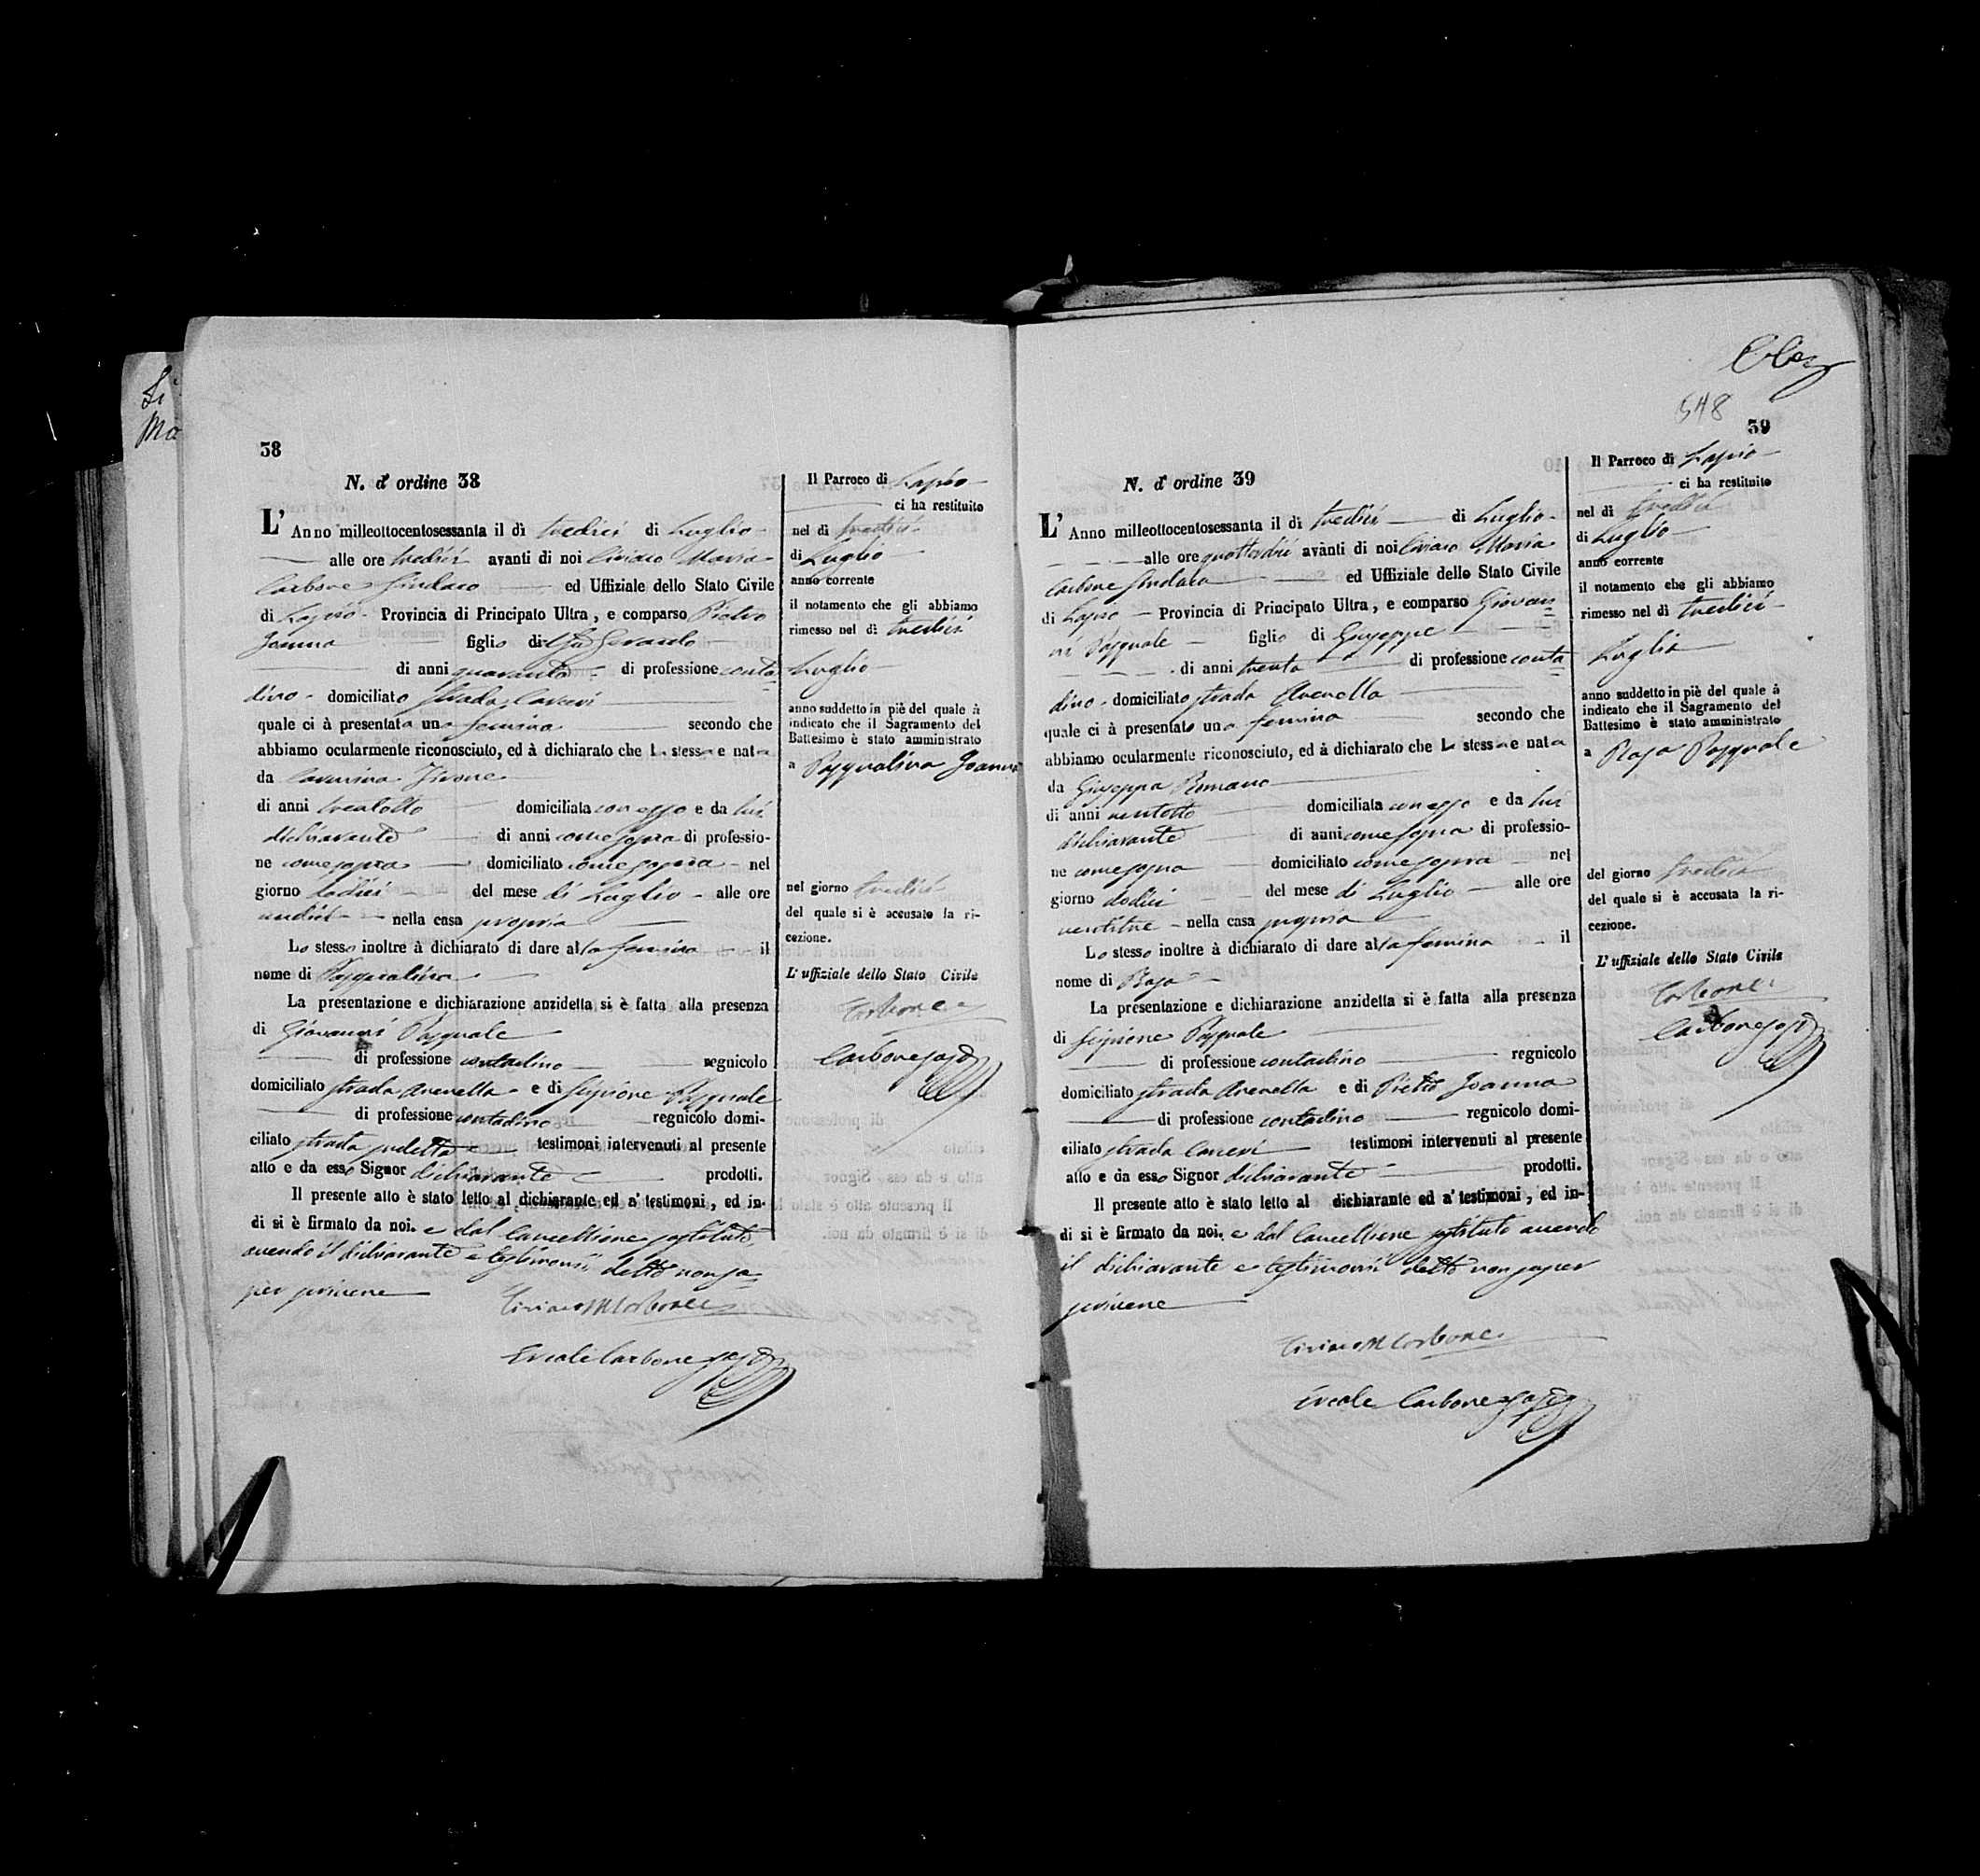 Si
Ma
38
N. d' ordine 38
L' Anno milleottocentosessanta il dì tredici di Luglio
alle ore tredici avanti di noi Ciriaco Maria
Carbone Sindaco ed Uffiziale dello Stato Civile
di Lapio Provincia di Principato Ultra, e comparso Pietro
Joanna figlio di Gerardo
di anni quaranta di professione conta
dino domiciliato strada
quale ci à presentata una femina secondo che
abbiamo ocularmente riconosciuto, ed à dichiarato che la stessa e nata
da
di anni trentotto domiciliata con esso e da lui
dichiarante di anni come sopra di professio-
ne come sopra domiciliato come sopra nel
giorno del mese di Luglio alle ore
undici nella casa propria
Lo stesso inoltre à dichiarato di dare alla femina il
nome di Pasqualina
La presentazione e dichiarazione anzidetta si è fatta alla presenza
di Giovanni Pasquale
di professione contadino regnicolo
domiciliato strada Arenella e di Scipione Pasquale
di professione contadino regnicolo domi-
ciliato strada sudetta testimoni intervenuti al presente
atto e da esso Signor dichiarante prodotti.
Il presente atto è stato letto al dichiarante ed a' testimoni, ed in-
di si è firmato da noi. e dal Cancelliere sostituto
avendo il dichiarante e testimoni detto non sa
per scrivere
Ciriaco M Carbone
Ercole Carbone
Il Parroco di Lapio
ci ha restituito
nel di tredici
di Luglio
anno corrente
il notamento che gli abbiamo
rimesso nel di tredici
Luglio
anno suddetto in piè del quale à
indicato che il Sagramento del
Battesimo è stato amministrato
a Pasqualina Joanna
nel giorno tredici
del quale si è accusato la ri-
cezione.
L' uffiziale dello Stato Civile
Carbone
Carbone
548
39
N. d' ordine 39
L' Anno milleottocentosessanta il di tredici di Luglio
alle ore quattordici avanti di noi Ciriaco Maria
Carbone Sindaco ed Uffiziale dello Stato Civile
di Lapio Provincia di Principato Ultra, e comparso Giovan
ni Pasquale figlio di Giuseppe
di anni trenta di professione conta
dino domiciliato strada Arenella
quale ci à presentato una femina secondo che
abbiamo ocularmente riconosciuto, ed à dichiarato che la stessa e nata
da Giuseppa Romano
di anni ventotto domiciliata con esso e da lui
dichiarante di anni come sopra di professio-
ne come sopra domiciliato come sopra nel
giorno dodici del mese di Luglio alle ore
ventitre nella casa propria
Lo stesso inoltre à dichiarato di dare alla femina il
nome di Rosa
La presentazione e dichiarazione anzidetta si è fatta alla presenza
di Scipione Pasquale
di professione contadino regnicolo
domiciliato strada Arenella e di Pietro Joanna
di professione contadino regnicolo domi-
ciliato strada testimoni intervenuti al presente
atto e da esso Signor dichiarante prodotti.
Il presente atto è stato letto al dichiarante ed a' testimoni, ed in-
di si è firmato da noi. e dal Cancelliere sostituto avendo
il dichiarante e testimoni detto non saper
scrivere
Ciriaco M Carbone
Ercole Carbone
Il Parroco di Lapio
ci ha restituito
nel di tredici
di Luglio
anno corrente
il notamento che gli abbiamo
rimesso nel di tredici
Luglio
anno suddetto in piè del quale à
indicato che il Sagramento del
Battesimo è stato amministrato
a Rosa Pasquale
del giorno tredici
del quale si è accusata la ri-
cezione.
L' uffiziale dello Stato Civile
Carbone
Carbone